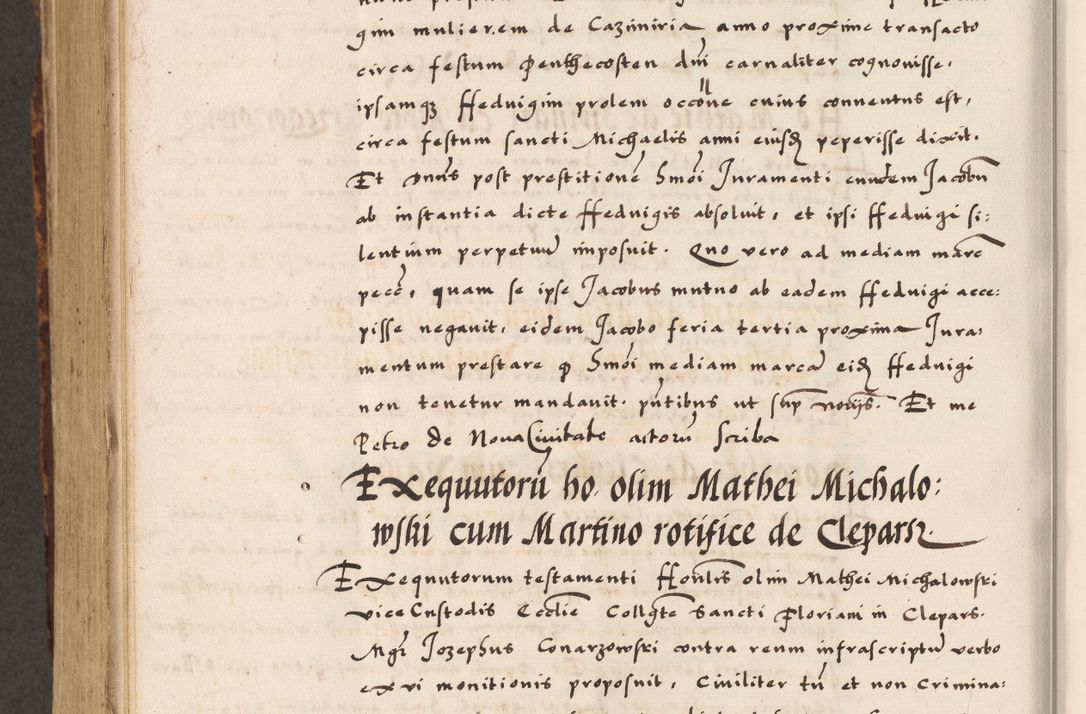 gim mulierem de Cazimiria anno proxime transacto
circa festum Penthecosten dni carnaliter cognovisse,
ipsamq3 ffedvigim prolem occone cuius conventus est,
circa festum sancti Michaelis anni eiusd peperisse dixit.
Et Dnus post prestitione Smoi Juramenti eundem Jacobu
ab instantia dicte ffedvigis absoluit, et ipsi ffedvigi si:
lentium perpetuu imposuit. Quo vero ad mediam marc
pecc, quam se ipse Jacobus mutuo ab eadem ffedvigi acce:
pisse negavit, eidem Jacobo feria tertia proxima Jura:
mentum prestare q Smoi mediam marca eid ffedvigi
non tenetur mandavit. pntibus ut sup norijs. Et me
Petro de Nova Civitate actoru scriba
Exequutoru ho. olim Mathei Michalo:
wski cum Martino rotifice de Cleparz
Exequutorum testamenti Honlis olim Mathei Michalowski
vice Custodis Ecclie Collgte Sancti Floriani in Clepars.
Mgr Jozephus Conarzowski contra reum infrascriptu verbo
ex vi monitionis proposuit, Civiliter tn et non Crimina: